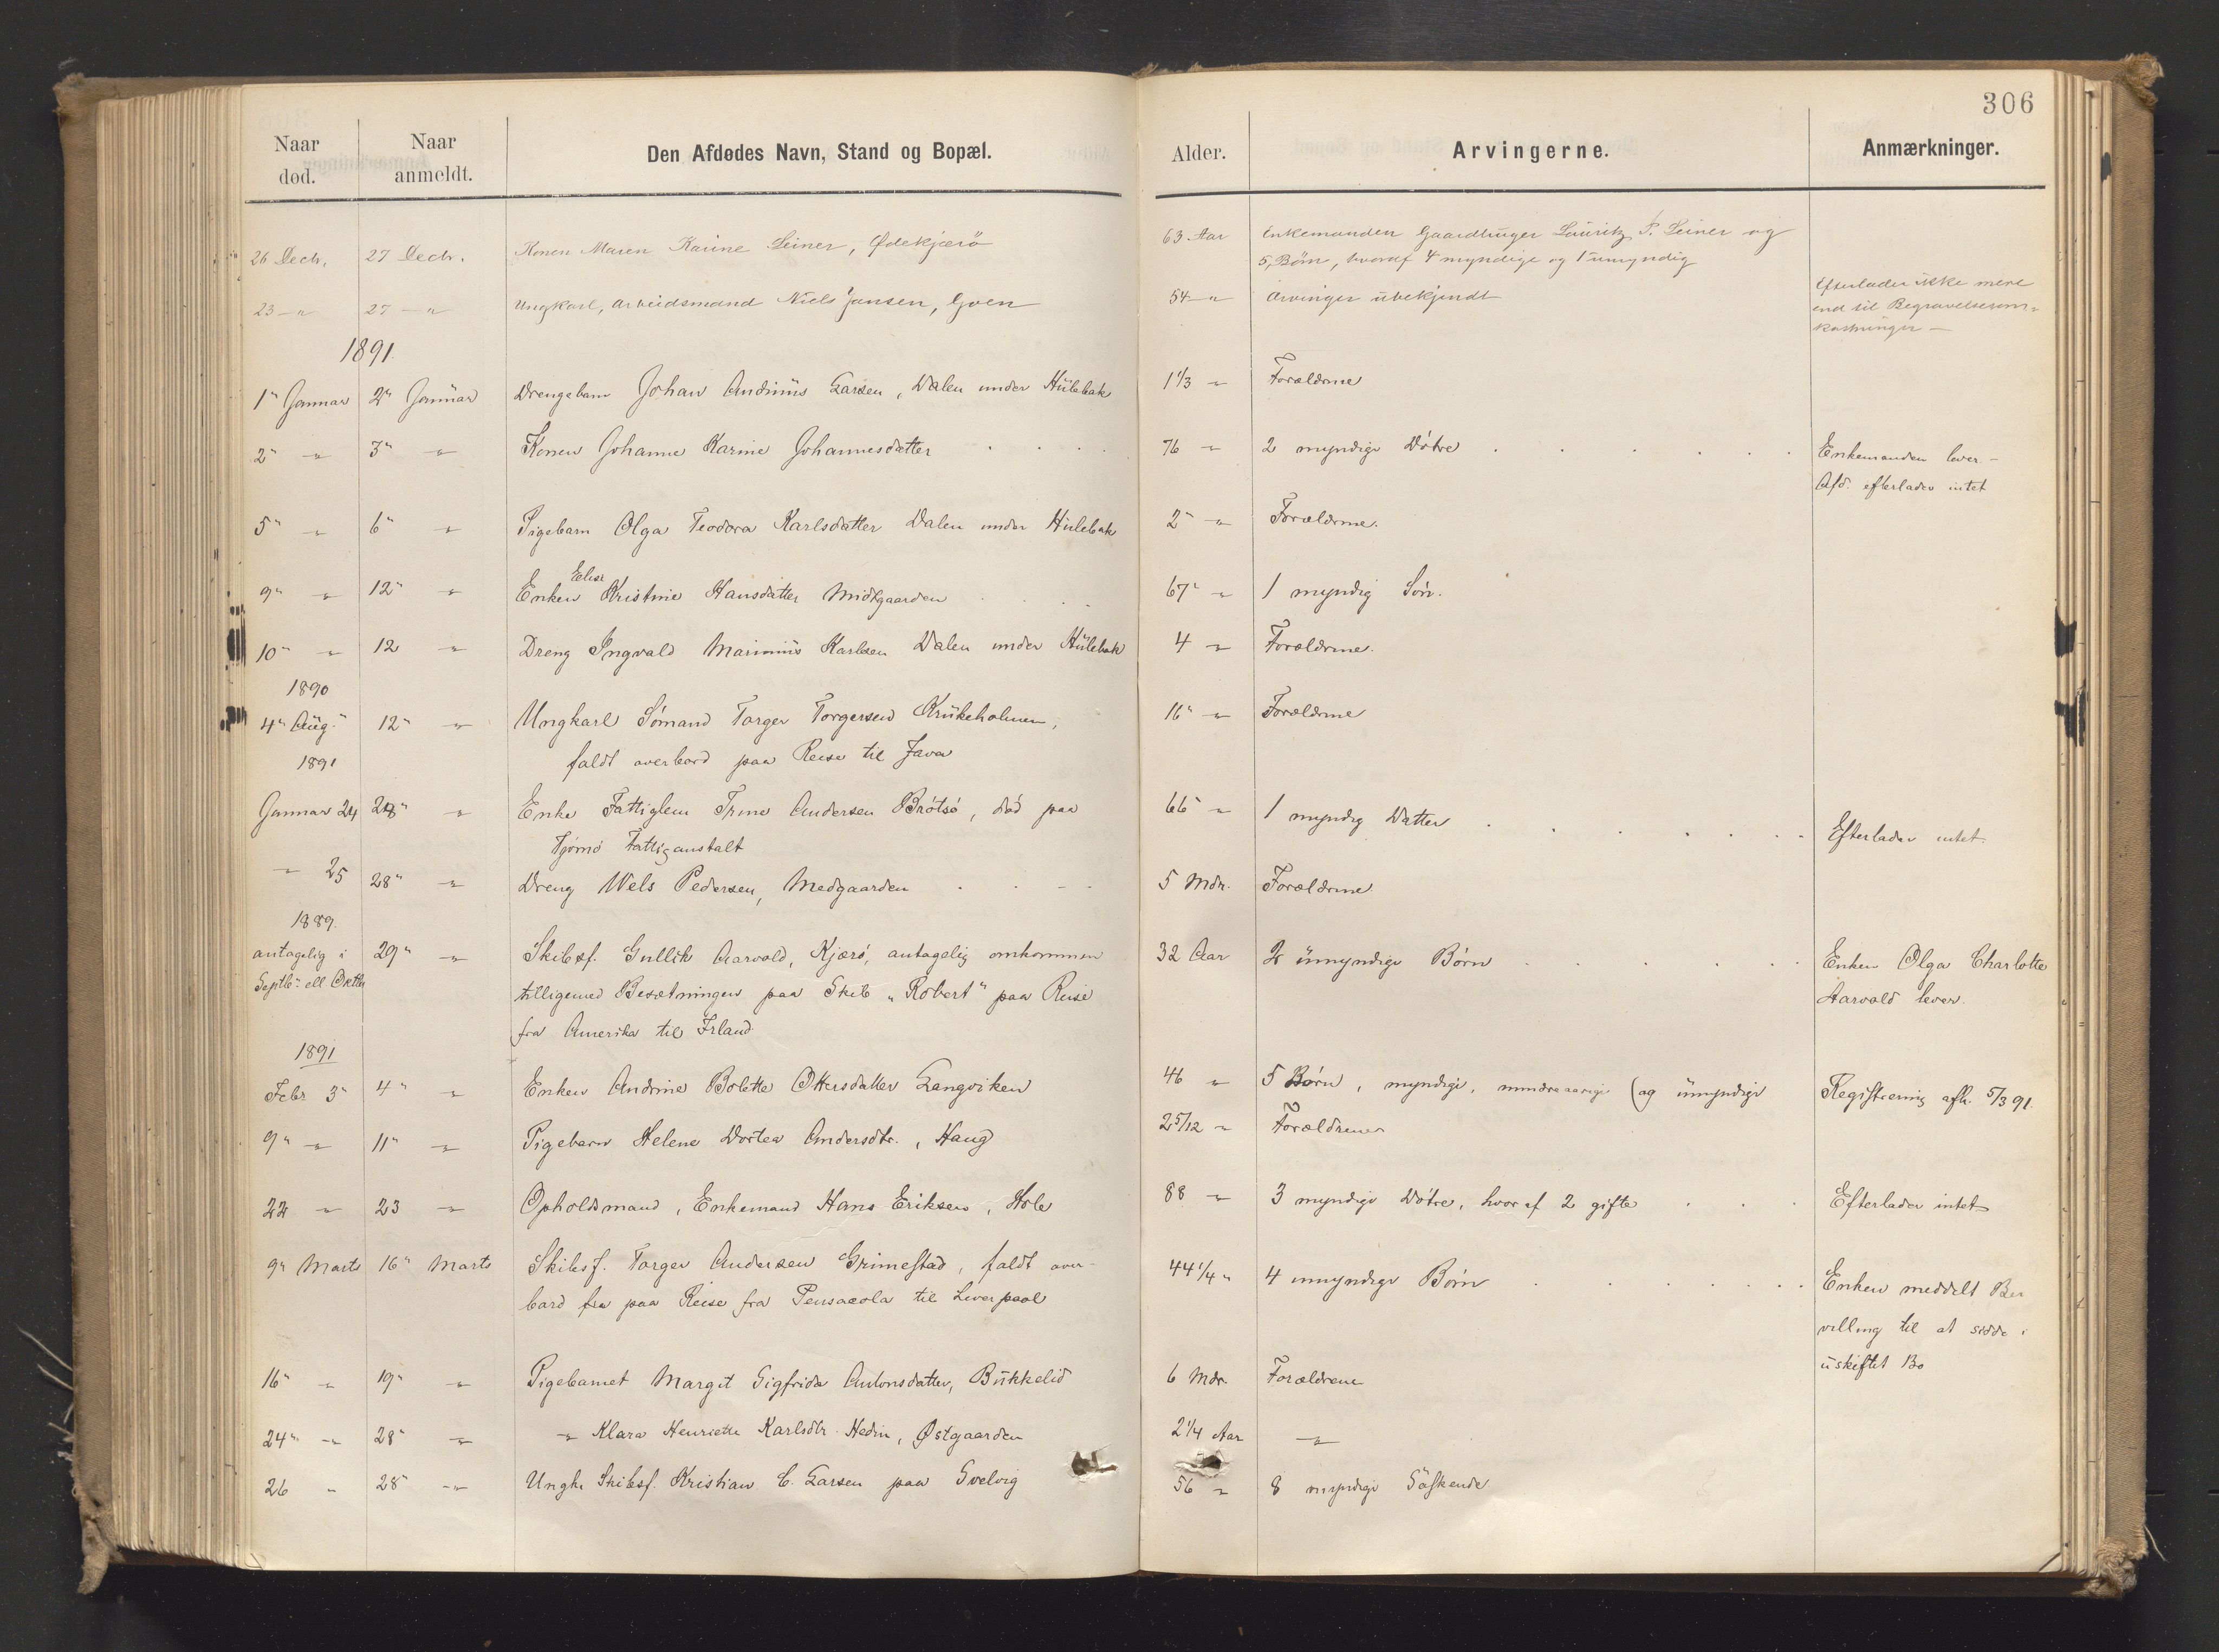 306
Naar død. Naar anmeldt. Den Afdødes Navn, Stand og Bopæl. Alder. Arvingerne. Anmærkninger.
26 Decbr. 27 Decbr. Konen Maren Karine Leiner, Ødekjærö 63 Aar Enkemanden Gaardbruger Lauritz P. Leiner og
5 Børn, hvoraf 4 myndige og 1 umyndig
23 –„– 27 –„– Ungkarl, Arbeidsmand Niels Jansen, Goen 54 –„– Arvinger ubekjendt Efterlader ikke mere
end til Begravelsesom=
kostninger –
1891.
1“ Januar 2“ Januar Drengebarn Johan Andinus Larsen, Dalen under Hulebak 1 1/3 –„– Forældrene
2“ –„– 3“ –„– Konen Johanne Karine Johannesdatter 76 –„– 2 myndige Døtre Enkemanden lever –
Afd. efterlader intet
5“ –„– 6“ –„– Pigebarn Olga Teodora Karlsdatter Dalen under Hulebak 2“ –„– Forældrene.
9“ –„– 12“ –„– Enken Elise Kristine Hansdatter Midtgaarden 67“ –„– 1 myndig Søn.
10“ –„– 12 –„– Dreng Ingvald Marinius Karlsen Dalen under Hulebak 4 –„– Forældrene.
1890
4“ Aug. 12“ –„– Ungkarl Sømand Torger Torgersen Krukeholmen, 16“ –„– Forældrene
faldt overbord paa Reise til Java
1891
Januar 24 28“ –„– Enke Fattiglem Trine Andersen Brøtsø, død paa 66“ –„– 1 myndig Datter Efterlader intet.
Tjømø Fattiganstalt
–„– 25 28“ –„– Dreng Nels Pedersen, Medgaarden 5 Mdr. Forældrene
1889.
antagelig i 29“ –„– Skibsf. Gullik Aarvold, Kjærø, antagelig omkommen 32 Aar 2 umyndige Børn Enken Olga Charlotte
Septb. ell Oktbr tilligemed Besætningen paa Skib „Robert“ paa Reise Aarvold lever.
fra Amerika til Irland
1891
Febr 3“ 4“ –„– Enken Andrine Bolette Ottersdatter Langviken 46 –„– 5 Børn, myndige, mindreaarige (og umyndige Registrering afh. 5/3 91.
9“ –„– 11“ –„– Pigebarn Helene Dortea Andersdtr., Haug 2 5/12 –„– Forældrene
22 –„– 23 –„– Opholdsmand, Enkemand Hans Eriksen, Hole 88 –„– 3 myndige Døtre, hvoraf 2 gifte Efterlader intet
9“ Marts 16“ Marts Skibsf. Torger Andersen Grimestad, faldt over- 44 1/4 „ 4 umyndige Børn Enken meddelt Be
bord fra paa Reise fra Pensacola til Liverpool villing til at sidde i
uskiftet Bo
16“ –„– 19“ –„– Pigebarnet Margit Sigfrida Antonsdatter, Bukkelid 6 Mdr. Forældrene
24“ –„– 28“ –„– –„– Klara Henriette Karlsdtr. Hedin, Østgaarden 2 1/4 Aar –„–
26 „ 28“ –„– Ungk. Skibsf. Kristian C. Larsen paa Svelvig 56 –„– 8 myndige Søskende